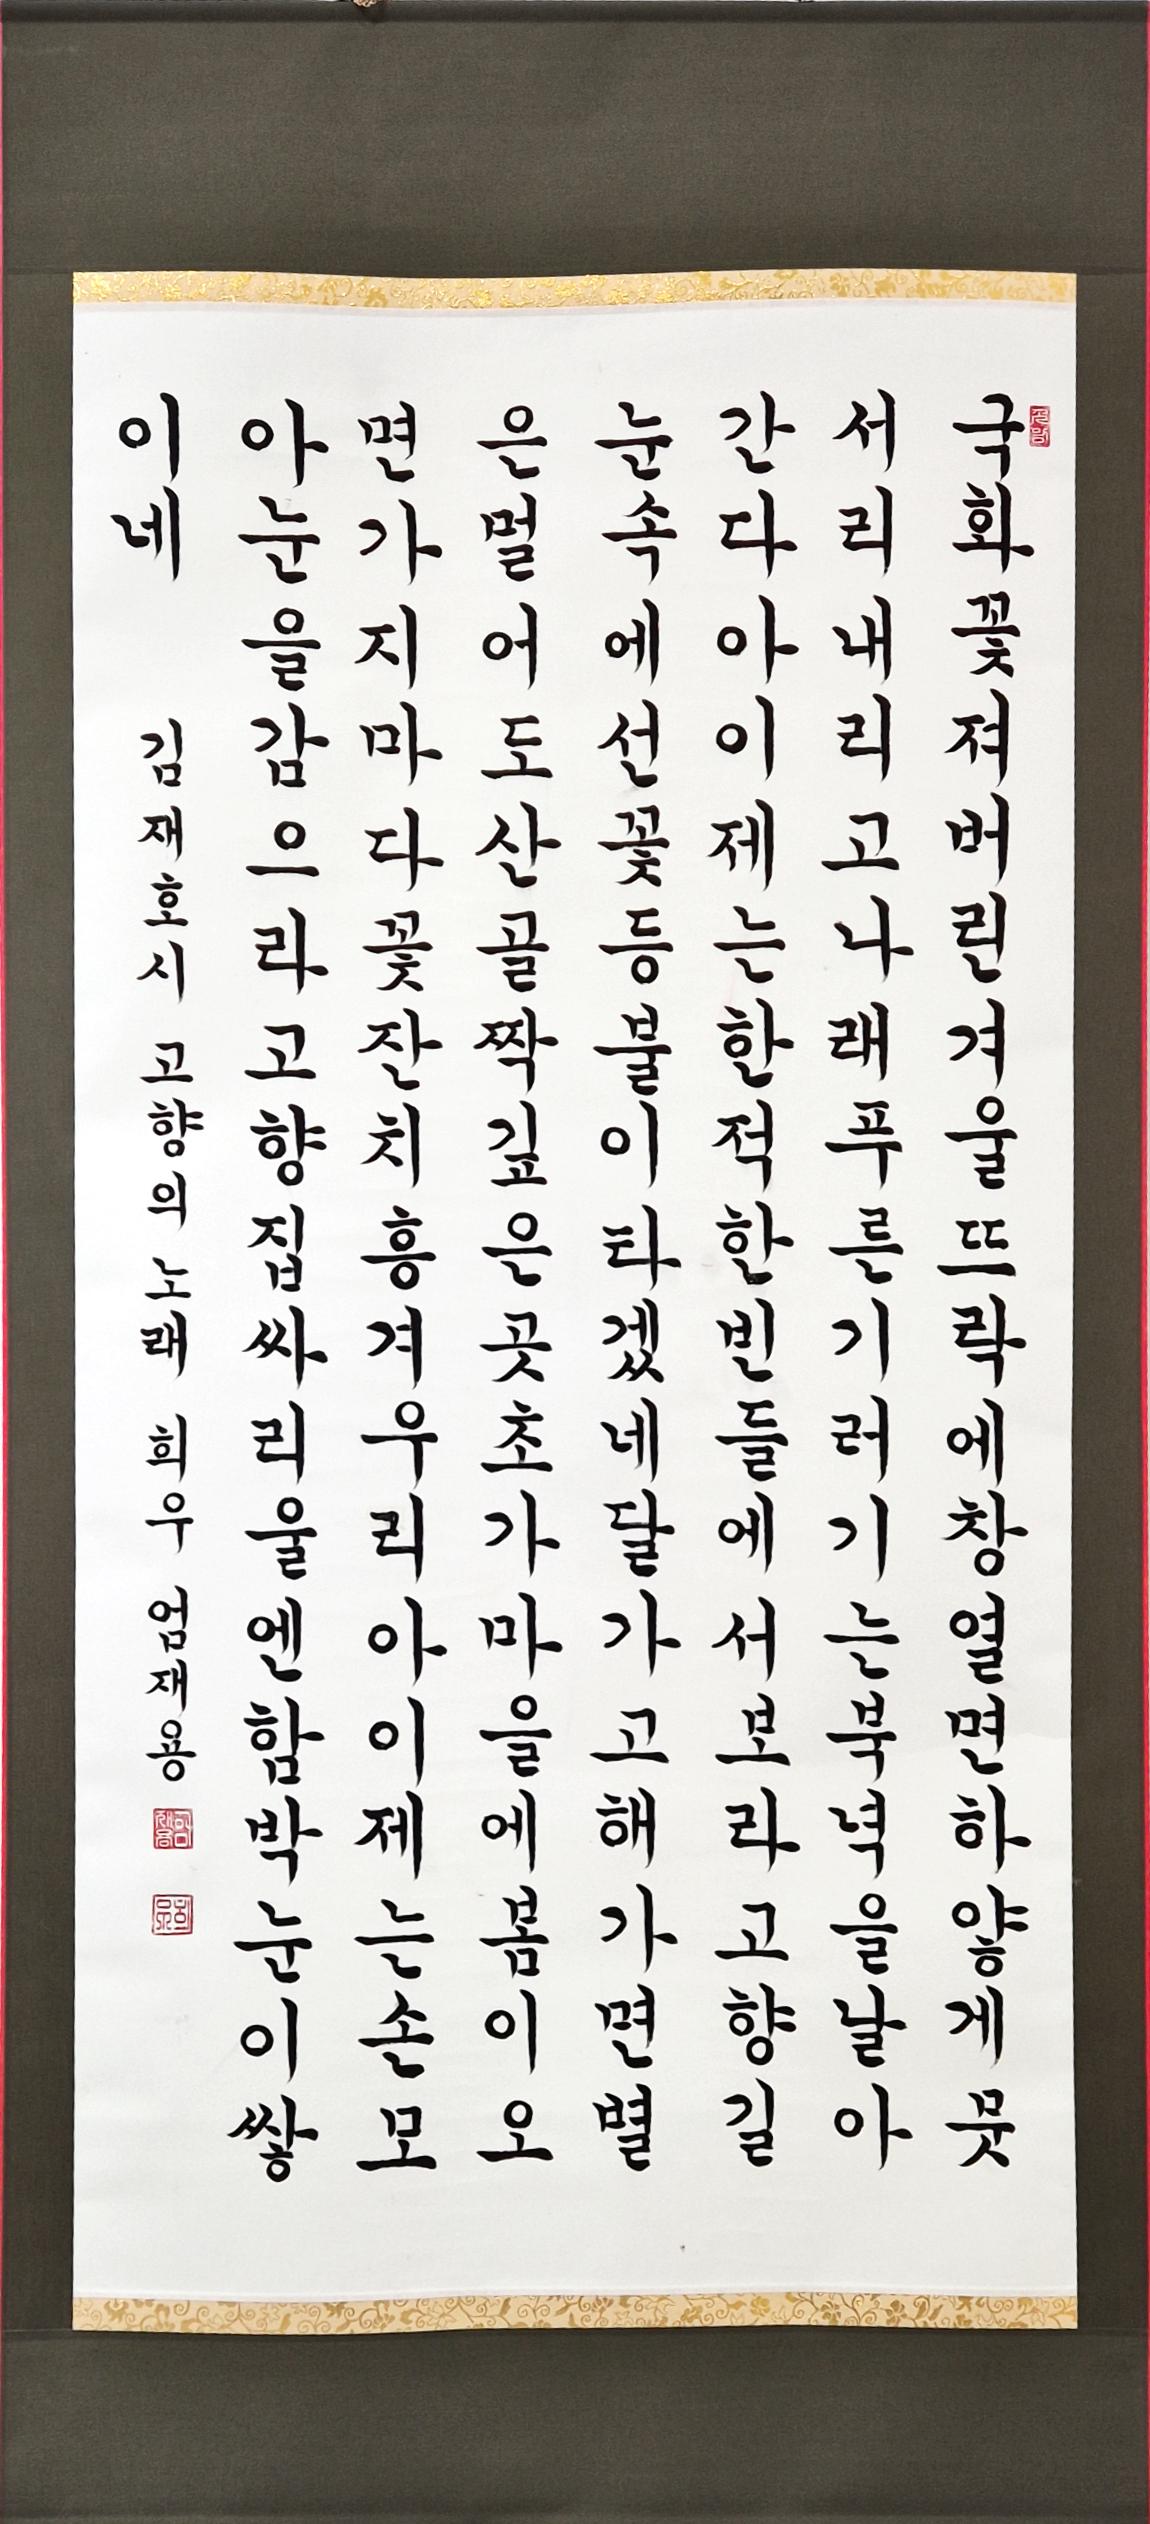 국화꽃져버린겨울뜨락에창열면하얗게뭇
서리내리고나래푸른기러기는북녘을날아
간다아이제는한적한빈들에서보라고향길
눈속에선꽃등불이타겠네달가고해가면별
은멀어도산골짝깊은곳초가마을에봄이오
면가지마다꽃잔치흥겨우리아이제는손모
아눈을감으라고향집싸리울엔함박눈이쌓
이네
김재호시 고향의 노래 희우 엄재용